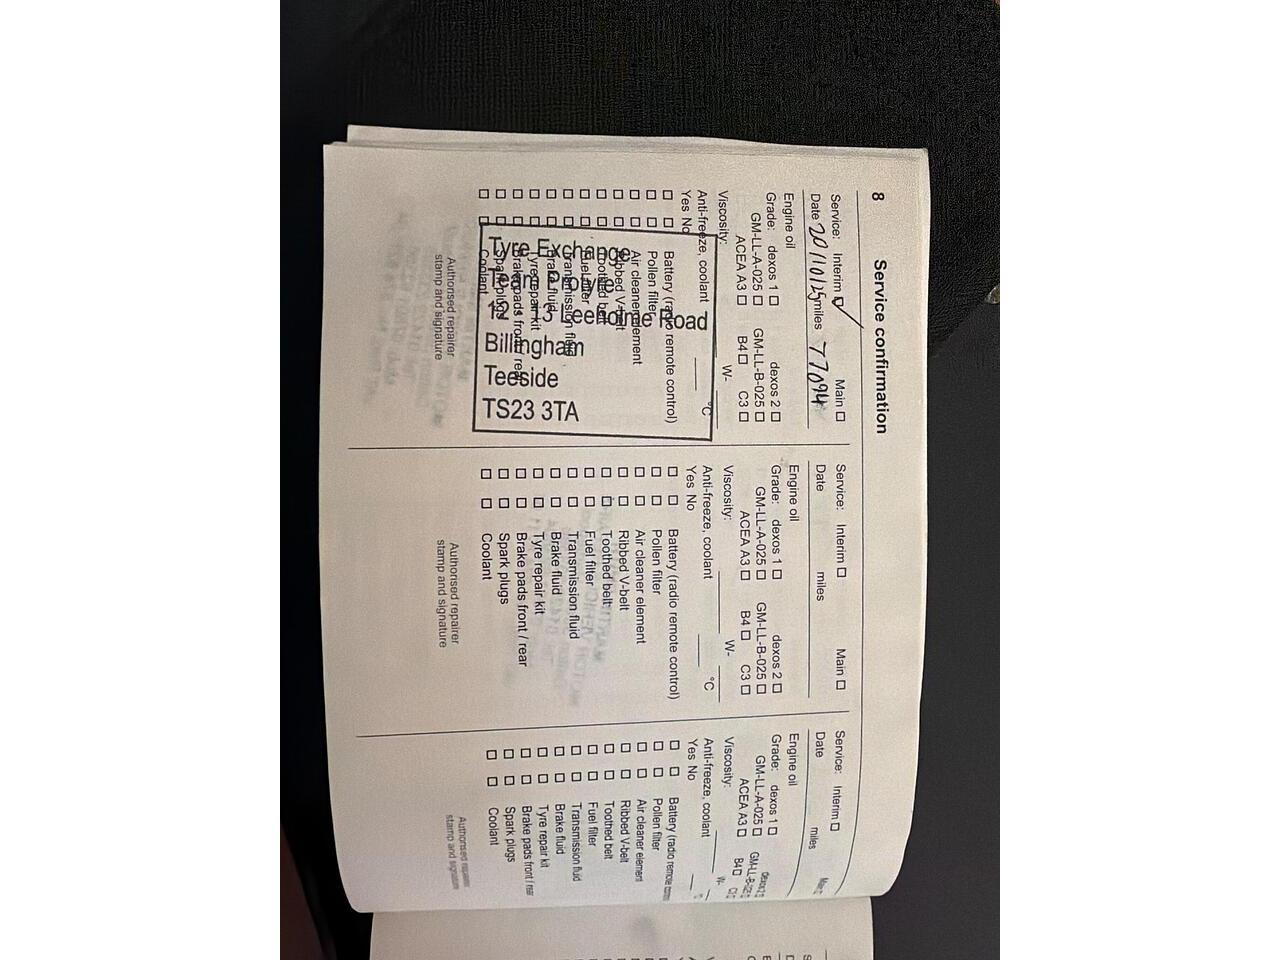 8
Service confirmation
Service: Interim ☑ Main ☐
Date 20/10/25 miles 77094
Engine oil
Grade: dexos 1 ☐ dexos 2 ☐
GM-LL-A-025 ☐ GM-LL-B-025 ☐
ACEA A3 ☐ B4 ☐ C3 ☐
Viscosity: W-
Anti-freeze, coolant °C
Yes No
☐ ☐ Battery (radio remote control)
☐ ☐ Pollen filter
☐ ☐ Air cleaner element
☐ ☐ Ribbed V-belt
☐ ☐ Toothed belt
☐ ☐ Fuel filter
☐ ☐ Transmission fluid
☐ ☐ Brake fluid
☐ ☐ Tyre repair kit
☐ ☐ Brake pads front / rear
☐ ☐ Spark plugs
☐ ☐ Coolant
Authorised repairer
stamp and signature
Tyre Exchange
Team Protyre
12 - 13 Leeholme Road
Billingham
Teeside
TS23 3TA
Service: Interim ☐ Main ☐
Date miles
Engine oil
Grade: dexos 1 ☐ dexos 2 ☐
GM-LL-A-025 ☐ GM-LL-B-025 ☐
ACEA A3 ☐ B4 ☐ C3 ☐
Viscosity: W-
Anti-freeze, coolant °C
Yes No
☐ ☐ Battery (radio remote control)
☐ ☐ Pollen filter
☐ ☐ Air cleaner element
☐ ☐ Ribbed V-belt
☐ ☐ Toothed belt
☐ ☐ Fuel filter
☐ ☐ Transmission fluid
☐ ☐ Brake fluid
☐ ☐ Tyre repair kit
☐ ☐ Brake pads front / rear
☐ ☐ Spark plugs
☐ ☐ Coolant
Authorised repairer
stamp and signature
Service: Interim ☐ Main ☐
Date miles
Engine oil
Grade: dexos 1 ☐ dexos 2 ☐
GM-LL-A-025 ☐ GM-LL-B-025 ☐
ACEA A3 ☐ B4 ☐ C3 ☐
Viscosity: W-
Anti-freeze, coolant °C
Yes No
☐ ☐ Battery (radio remote control)
☐ ☐ Pollen filter
☐ ☐ Air cleaner element
☐ ☐ Ribbed V-belt
☐ ☐ Toothed belt
☐ ☐ Fuel filter
☐ ☐ Transmission fluid
☐ ☐ Brake fluid
☐ ☐ Tyre repair kit
☐ ☐ Brake pads front / rear
☐ ☐ Spark plugs
☐ ☐ Coolant
Authorised repairer
stamp and signature